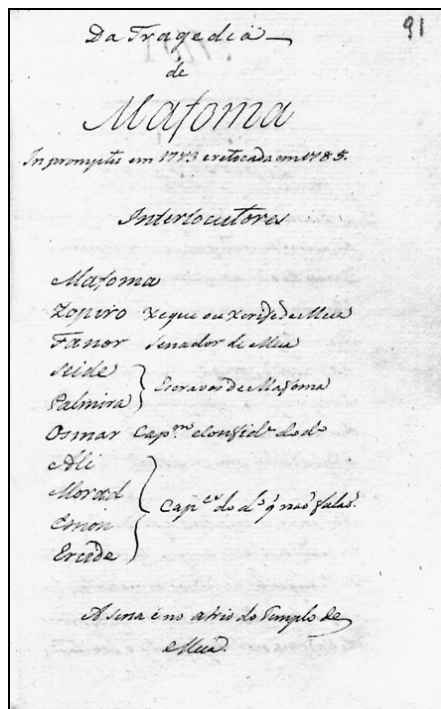 91
Da Tragedia
de
Mafoma
In promptu em 1773 e retocada em 1785.
Interlocutores
Mafoma
Zopiro Xeque ou Xerife de Meca
Fanor Senador de Meca
Seide
Palmira } Escravos de Mafoma
Osmar Cap.^m e confid.^e do d.^o
Ali
Morad
Ercide } Cap.^es do d.^o q̃ naõ falaõ.
A sena é no atrio do Templo de
Meca.